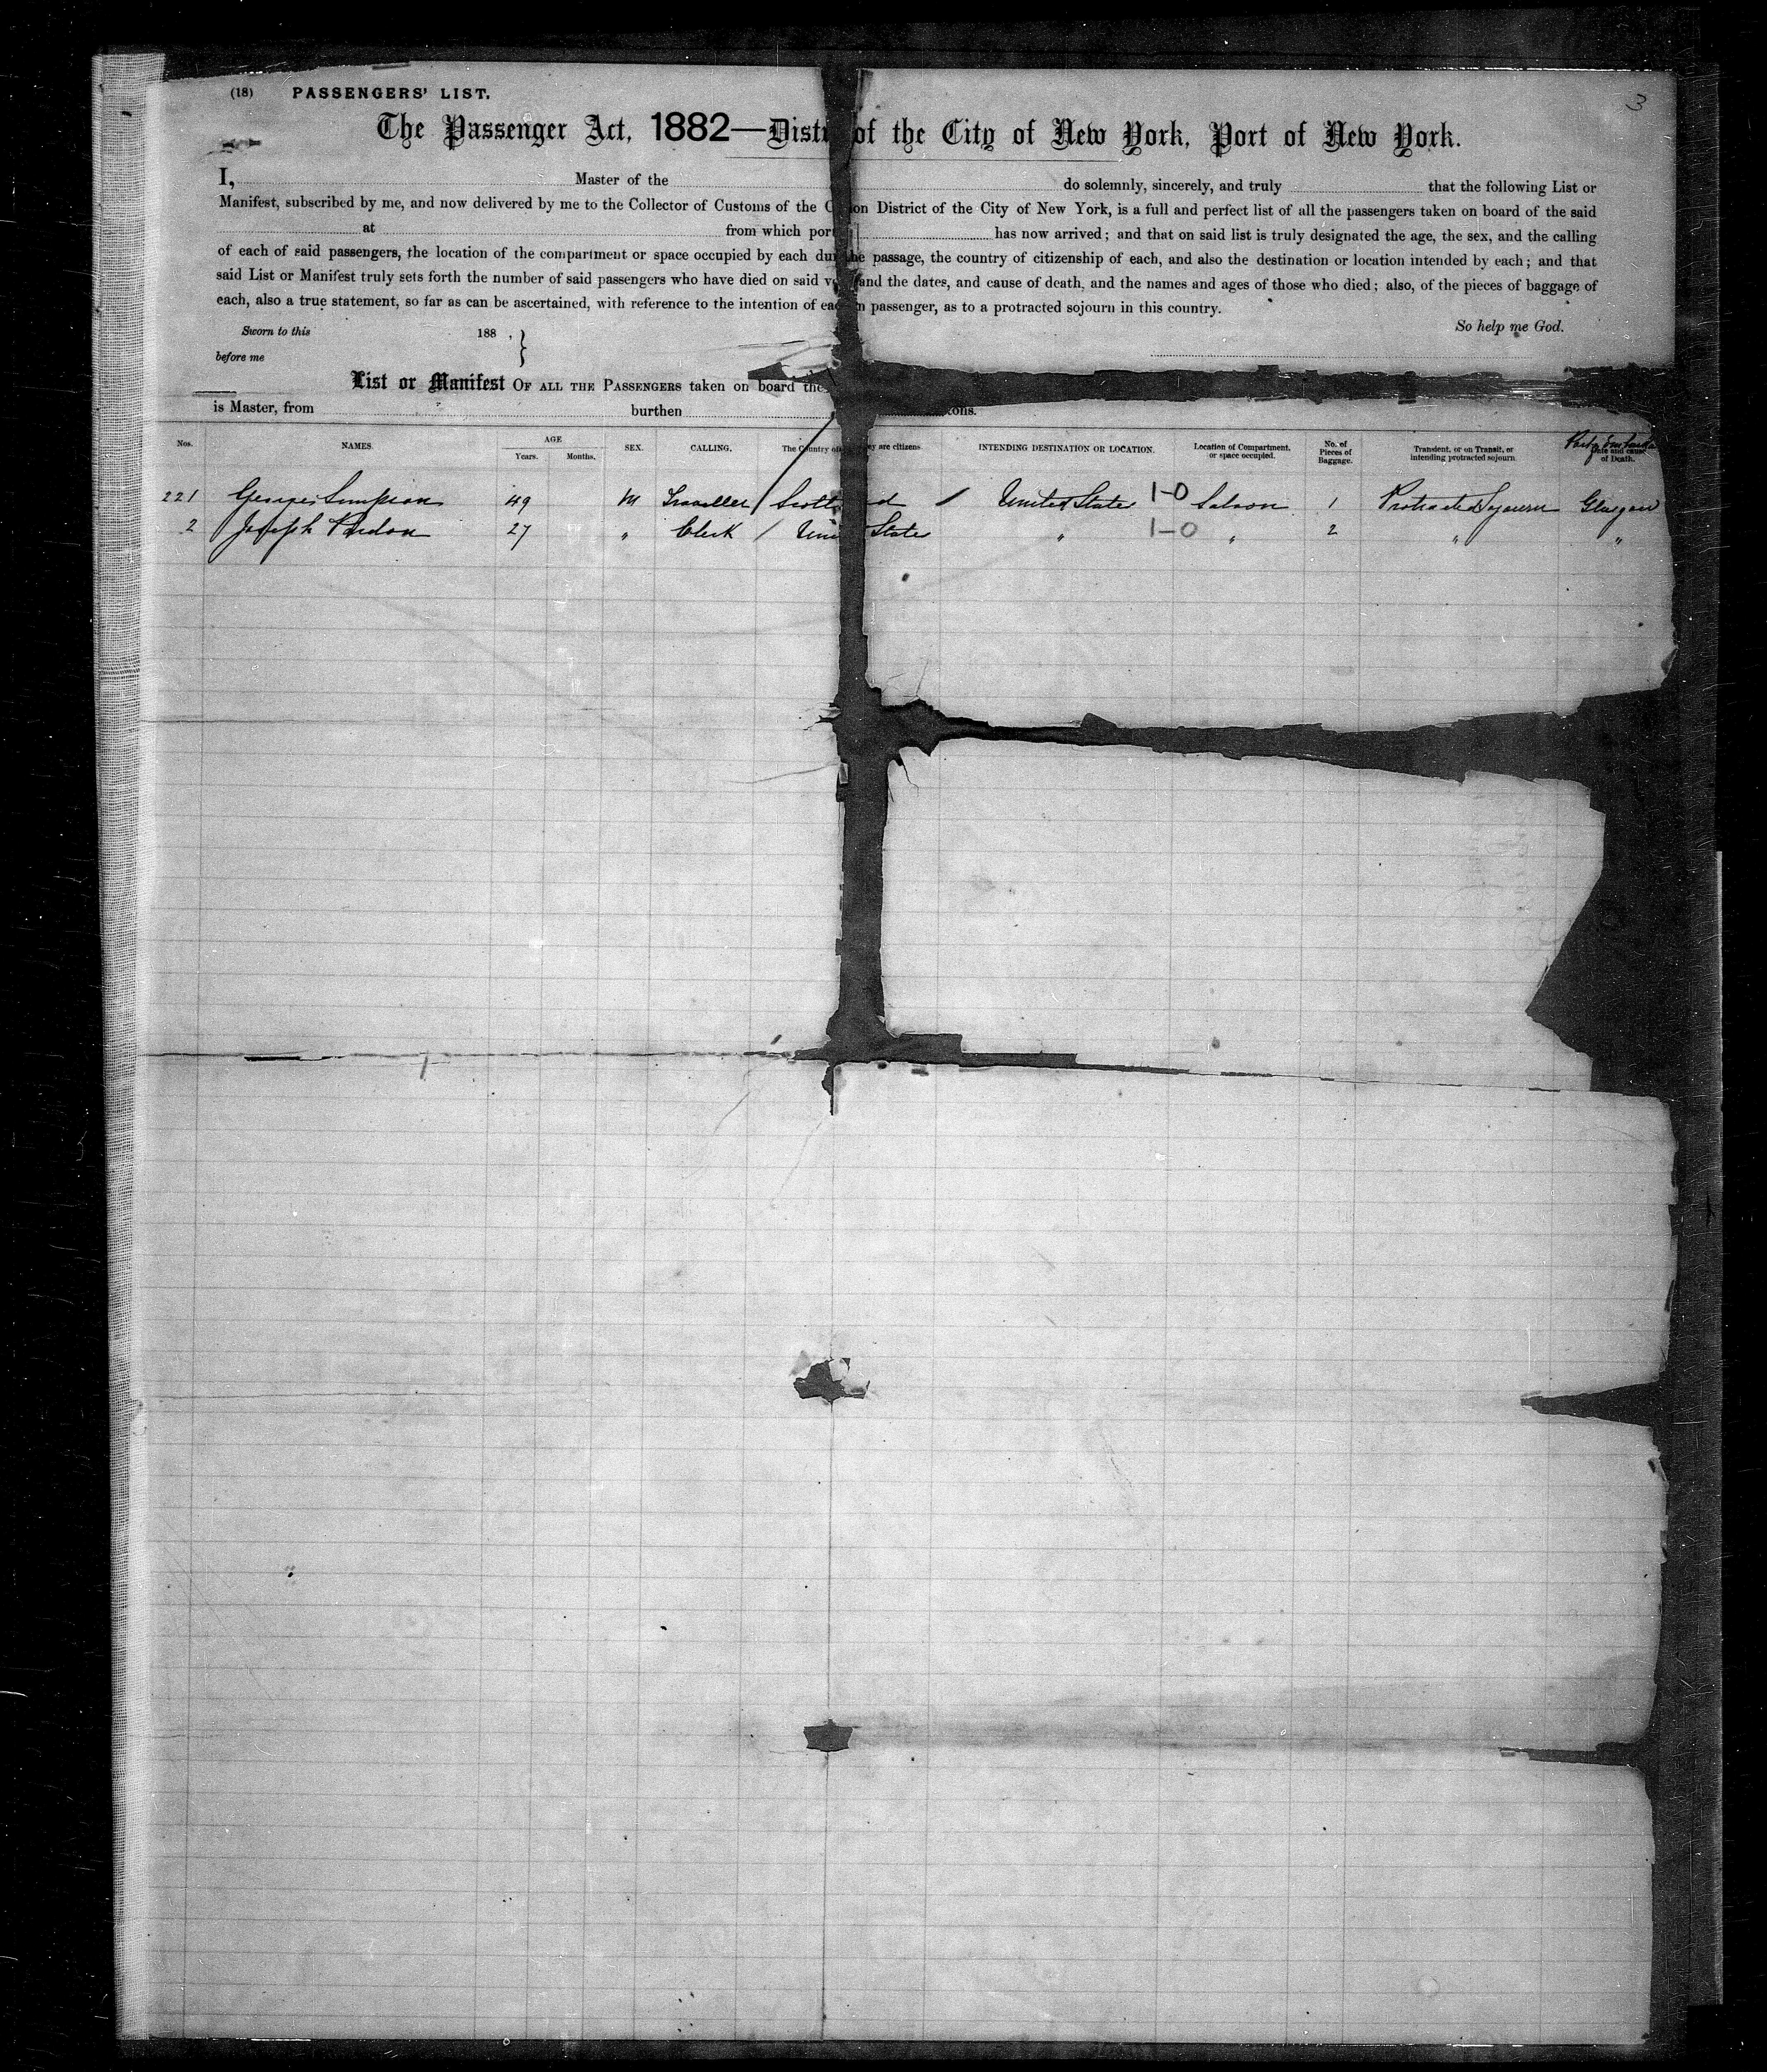 3
(18) PASSENGERS' LIST.
The Passenger Act, 1882—Distr of the City of New York, Port of New York.
I, Master of the do solemnly, sincerely, and truly that the following List or
Manifest, subscribed by me, and now delivered by me to the Collector of Customs of the C on District of the City of New York, is a full and perfect list of all the passengers taken on board of the said
at from which port has now arrived; and that on said list is truly designated the age, the sex, and the calling
of each of said passengers, the location of the compartment or space occupied by each du he passage, the country of citizenship of each, and also the destination or location intended by each; and that
said List or Manifest truly sets forth the number of said passengers who have died on said v and the dates, and cause of death, and the names and ages of those who died; also, of the pieces of baggage of
each, also a true statement, so far as can be ascertained, with reference to the intention of eac n passenger, as to a protracted sojourn in this country.
Sworn to this 188 , So help me God.
before me
List or Manifest OF ALL THE PASSENGERS taken on board the
is Master, from burthen tons.
Nos. NAMES. AGE Years. Months. SEX. CALLING. The Country of ey are citizens. INTENDING DESTINATION OR LOCATION. Location of Compartment, or space occupied. No. of Pieces of Baggage. Transient, or on Transit, or intending protracted sojourn. Date and cause of Death.
221 George Simpson 49 M Traveller / Scotl d / United States 1-0 Saloon 1 Protracted Sojourn Glasgow
2 Joseph 27 " Clerk / Uni States " 1-0 " 2 " "